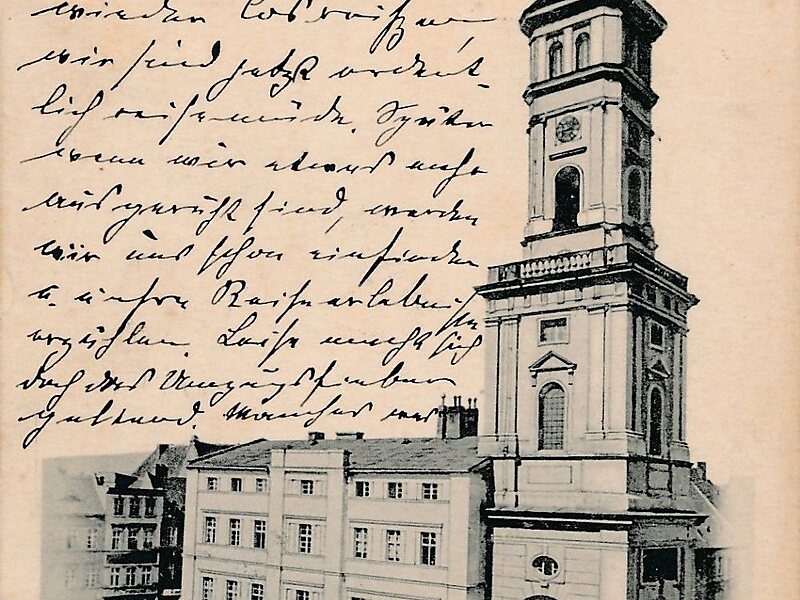 wieder losreißen,
wir sind jetzt ordent-
lich reisemüde. Später
wenn wir etwas mehr
ausgeruht sind, werden
wir uns schon einfinden
u. unsre Reiseerlebnisse
erzählen. Leise macht sich
doch das Umzugsfieber
geltend. Manches